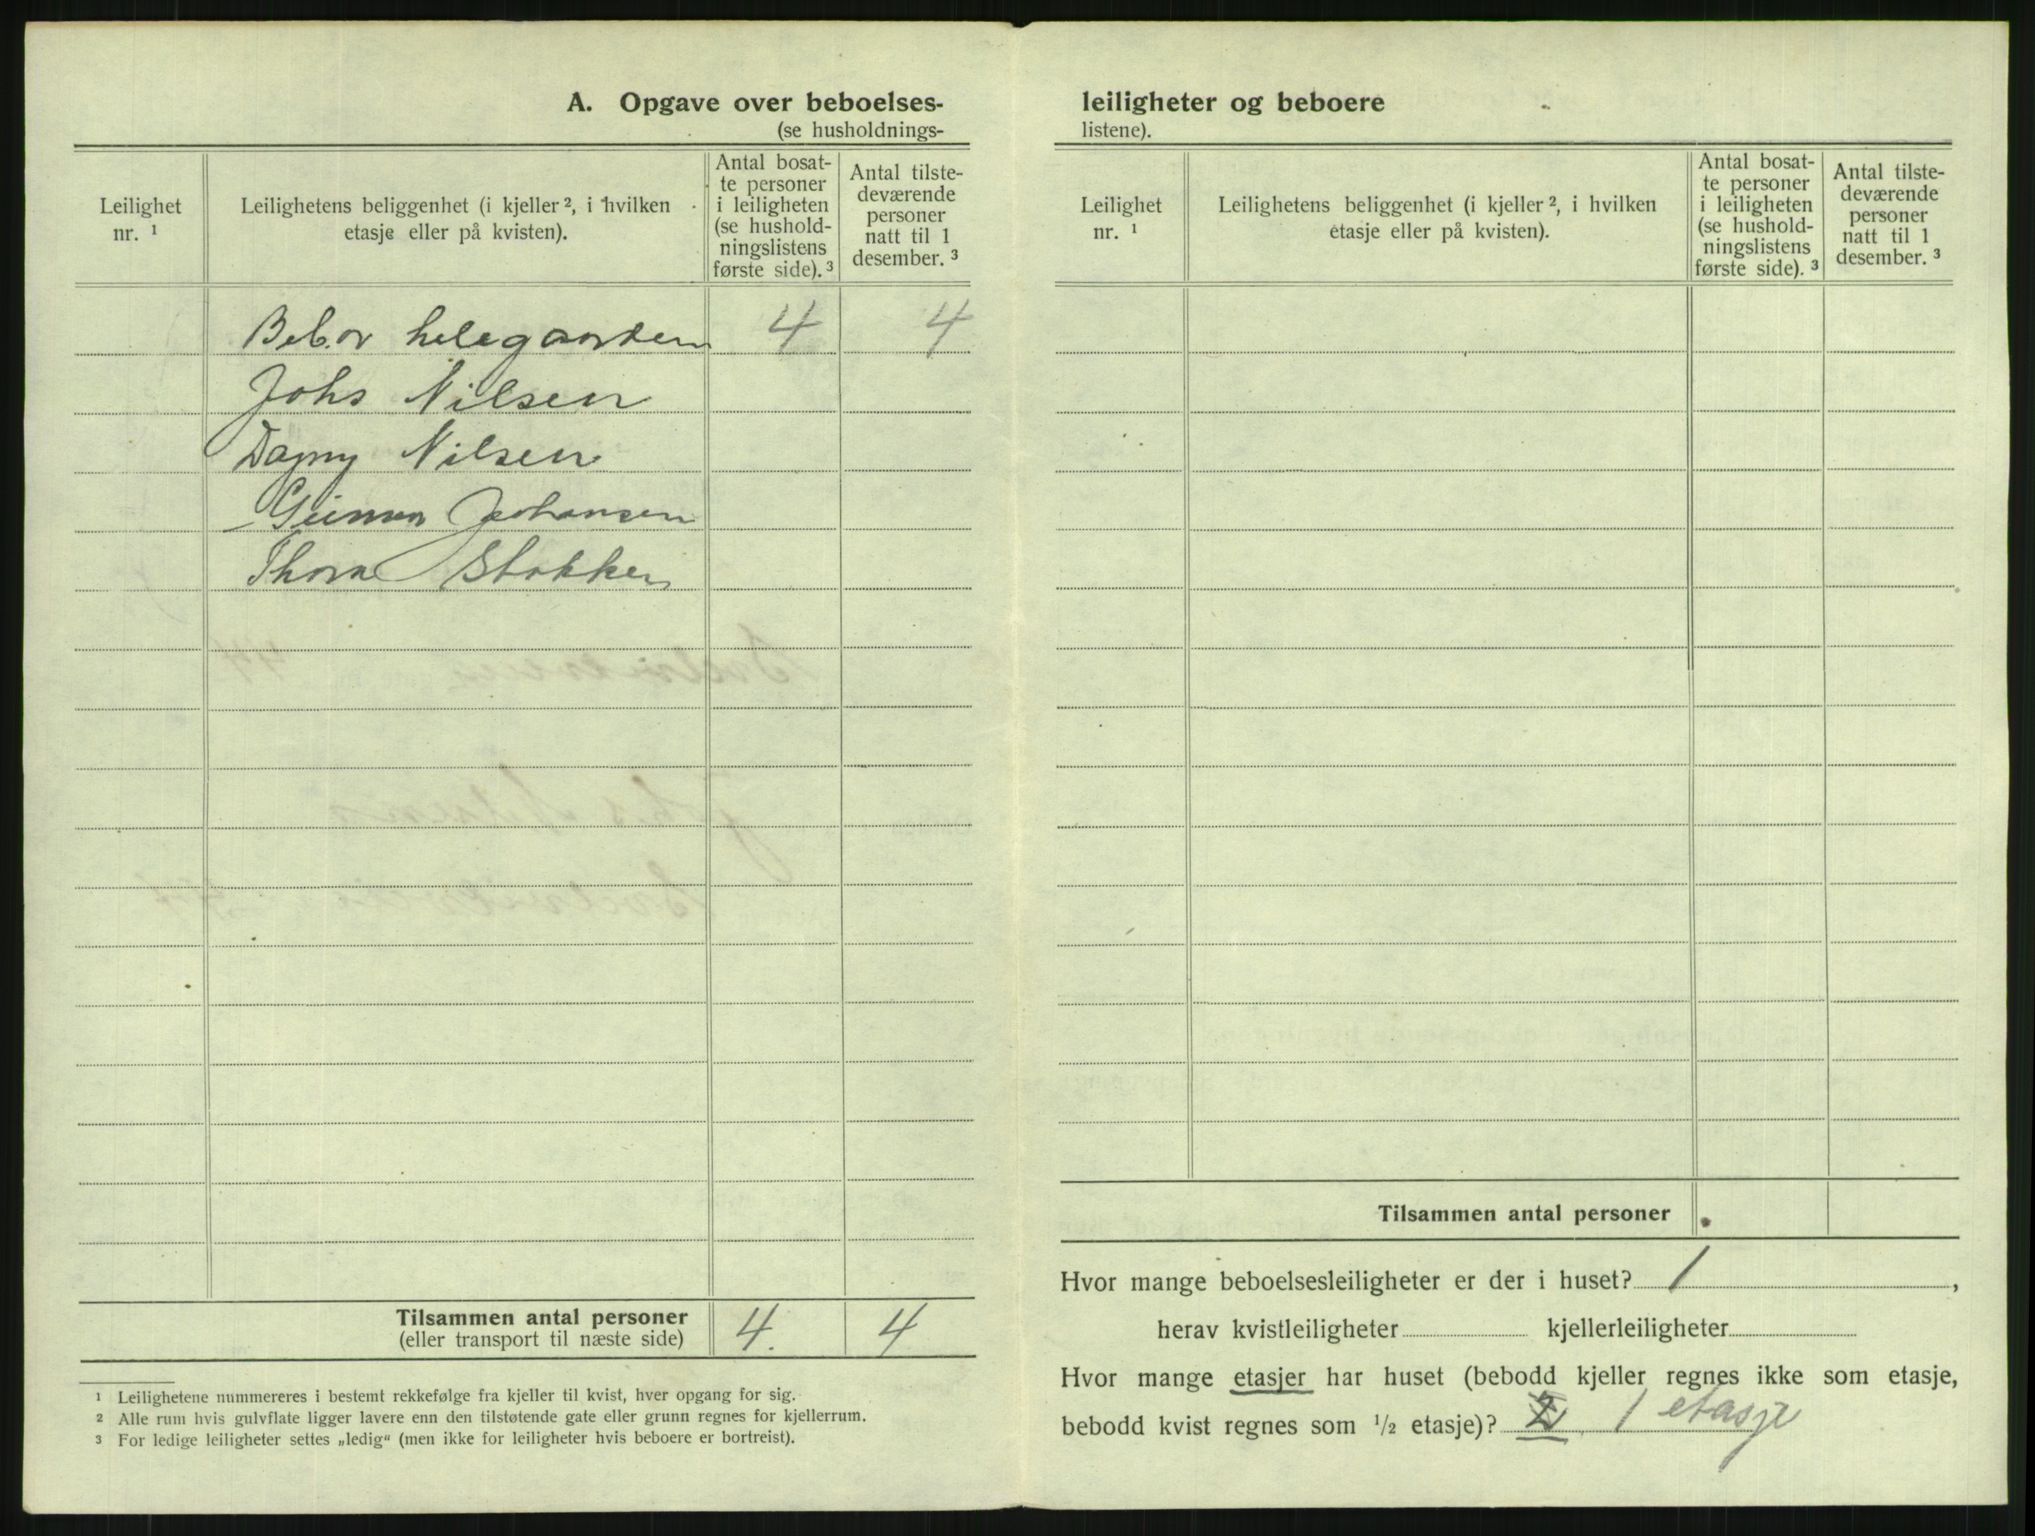 A. Opgave over beboelses-
(se husholdnings-
Leilighet nr. ¹
Leilighetens beliggenhet (i kjeller ², i hvilken etasje eller på kvisten).
Antal bosat-
te personer
i leiligheten
(se hushold-
ningslistens
første side). ³
Antal tilste-
deværende
personer
natt til 1
desember. ³
Beb.or helegaarden 4 4
Johs Nilsen
Dagny Nilsen
Johansen
Thora Stokken
Tilsammen antal personer
(eller transport til næste side) 4. 4
¹ Leilighetene nummereres i bestemt rekkefølge fra kjeller til kvist, hver opgang for sig.
² Alle rum hvis gulvflate ligger lavere enn den tilstøtende gate eller grunn regnes for kjellerrum.
³ For ledige leiligheter settes „ledig“ (men ikke for leiligheter hvis beboere er bortreist).
leiligheter og beboere
listene).
Leilighet nr. ¹
Leilighetens beliggenhet (i kjeller ², i hvilken etasje eller på kvisten).
Antal bosat-
te personer
i leiligheten
(se hushold-
ningslistens
første side). ³
Antal tilste-
deværende
personer
natt til 1
desember. ³
Tilsammen antal personer
Hvor mange beboelsesleiligheter er der i huset? 1,
herav kvistleiligheter kjellerleiligheter
Hvor mange etasjer har huset (bebodd kjeller regnes ikke som etasje,
bebodd kvist regnes som ¹/₂ etasje)? 2 1 etasje